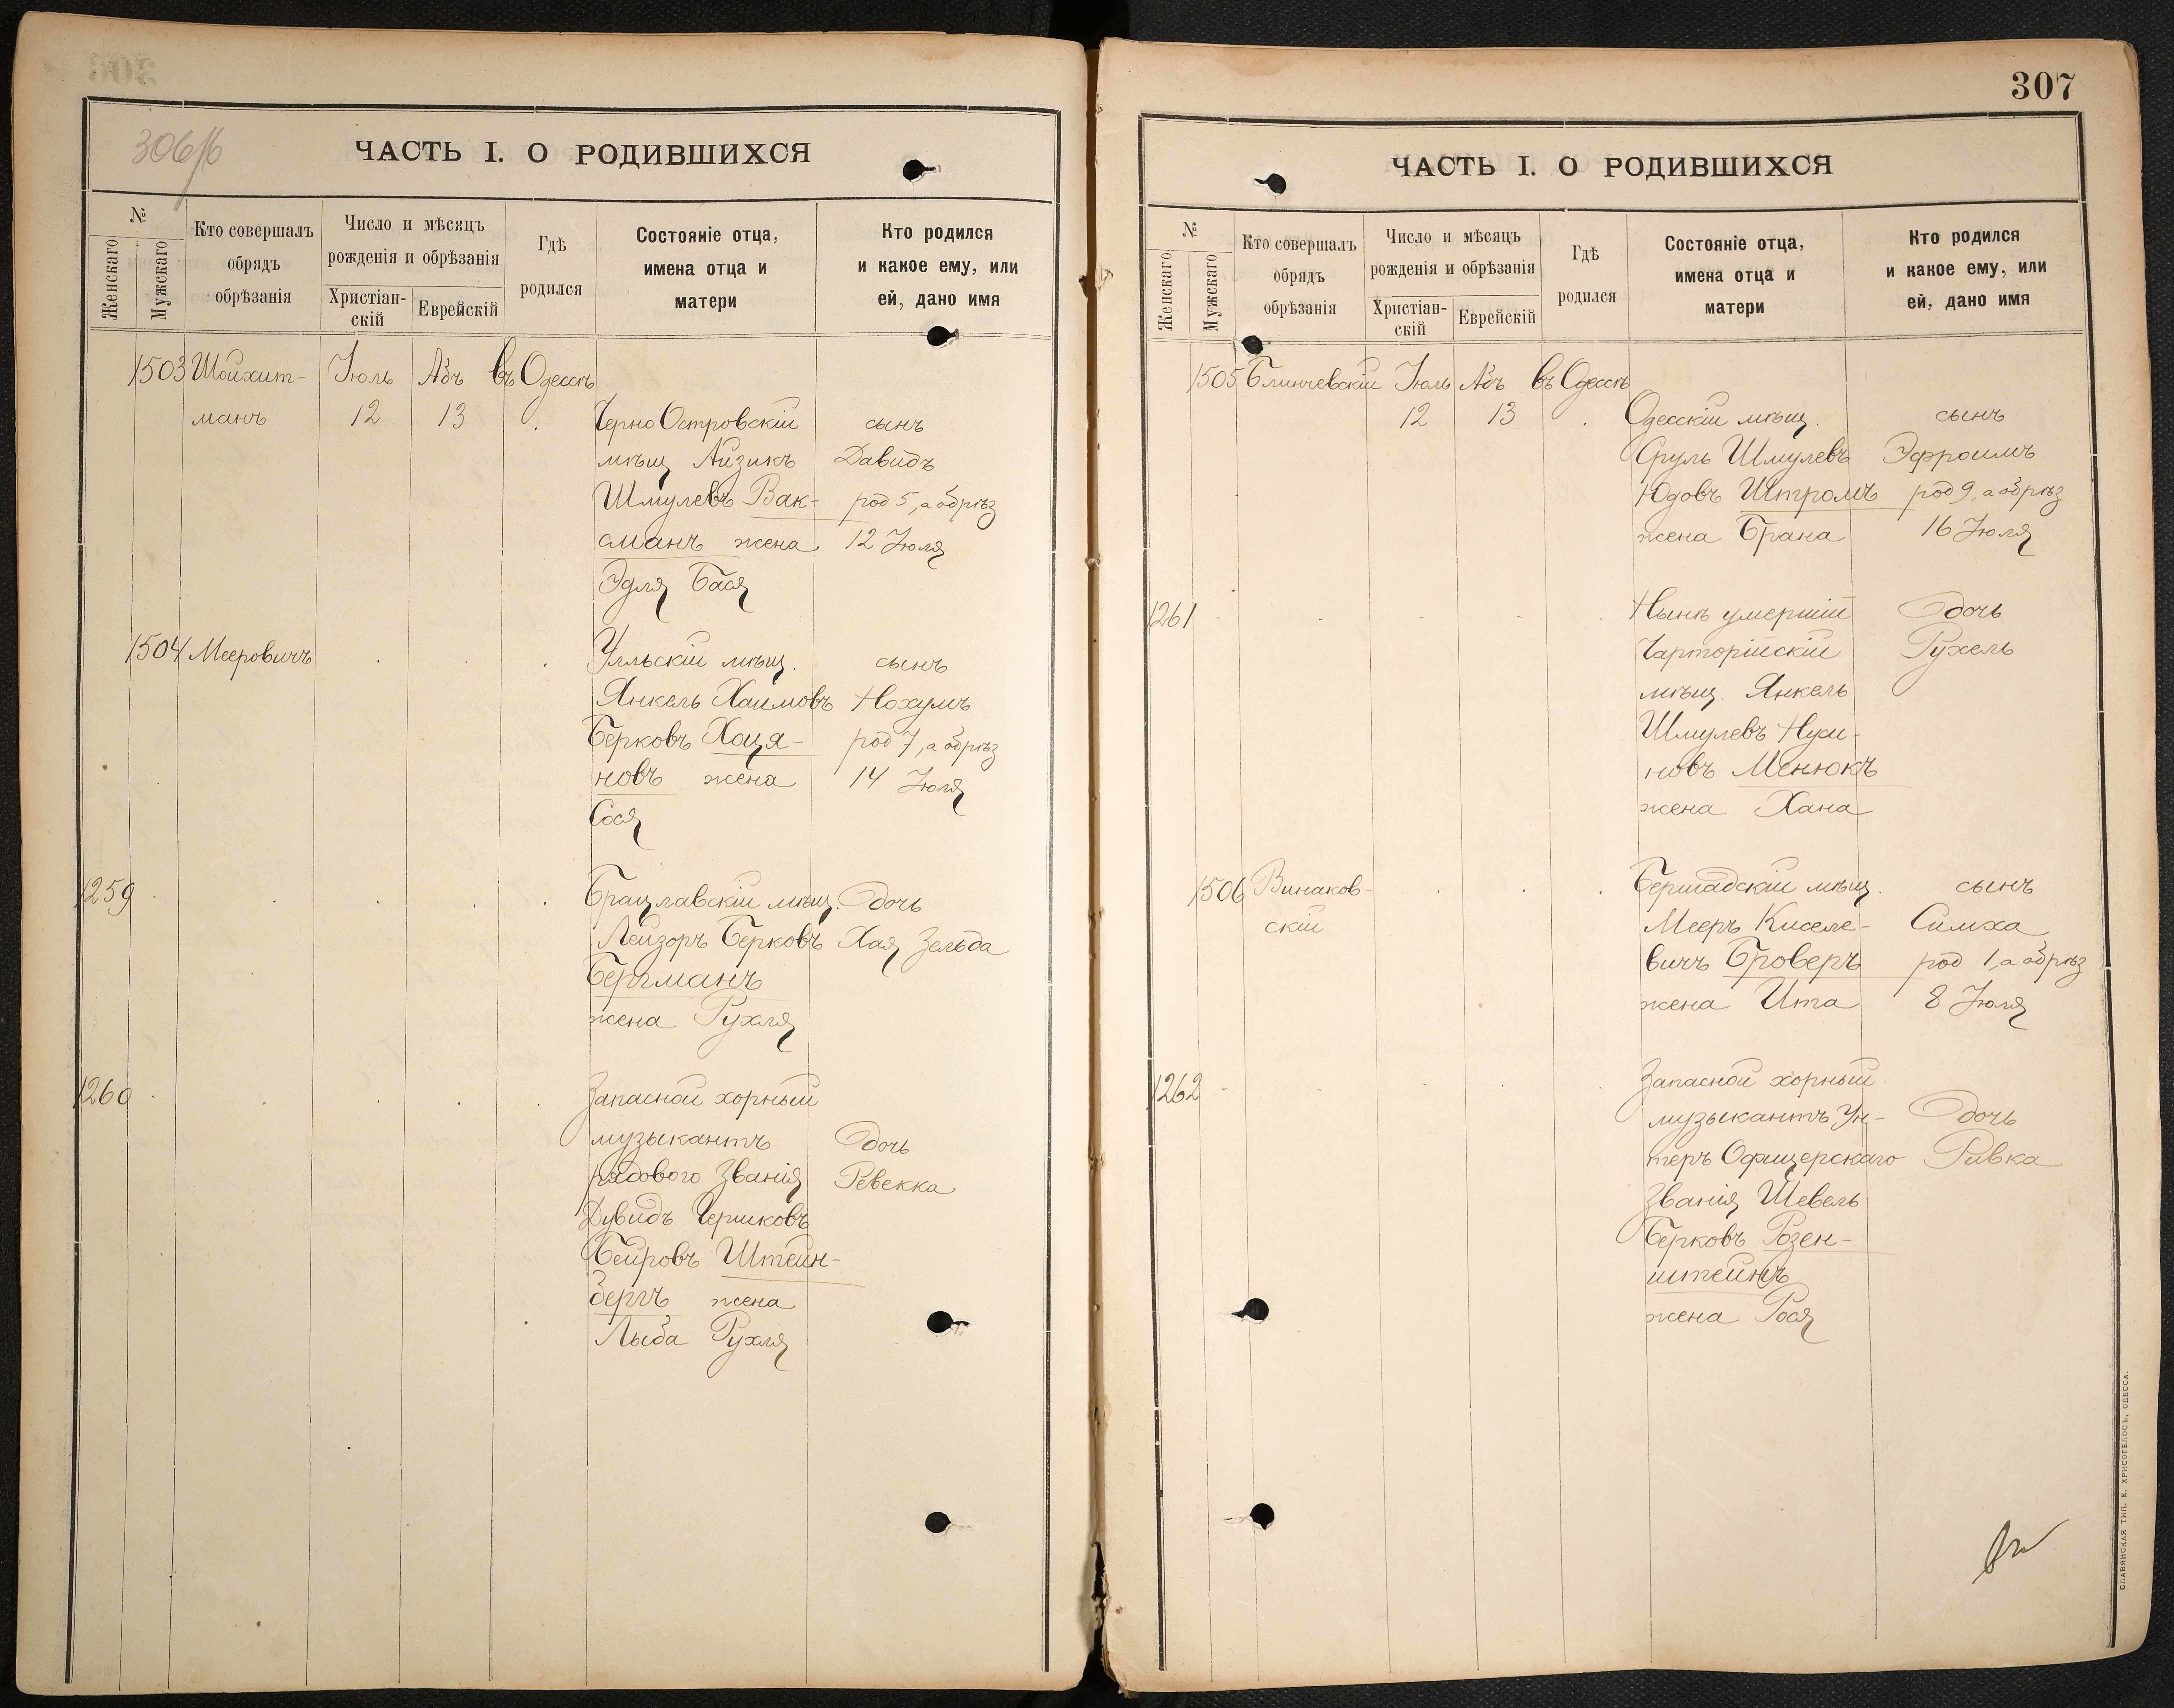 306/б
ЧАСТЬ I. О РОДИВШИХСЯ
№
Женскаго
Мужскаго
Кто совершалъ
обрядъ
обрѣзанія
Число и мѣсяцъ
рожденія и обрѣзанія
Христіан-
скій
Еврейскій
Гдѣ
родился
Состояніе отца,
имена отца и
матери
Кто родился
и какое ему, или
ей, дано имя
1503 Шойхит- Іюль Абъ въ Одессѣ
манъ 12 13 Черно Островскій сынъ
мѣщ Айзикъ Давидъ
Шмулевъ Вак- род 5, а обрѣз
сманъ жена 12 Іюля
Эдля Бася
1504 Мееровичъ Улльскій мѣщ. сынъ
Янкель Хаимовъ Нохумъ
Берковъ Хоця- род 7, а обрѣз
новъ жена 14 Іюля
Сося
1259 Брацлавскій мѣщ. дочь
Лейзоръ Берковъ Хая Зельда
Бергманъ
жена Рухля
1260 Запасной хорный
музыкантъ дочь
рядового званія Ревекка
Дувидъ Гершковъ
Бейровъ Штейн-
бергъ жена
Лыба Рухля
307
ЧАСТЬ I. О РОДИВШИХСЯ
№
Женскаго
Мужскаго
Кто совершалъ
обрядъ
обрѣзанія
Число и мѣсяцъ
рожденія и обрѣзанія
Христіан-
скій
Еврейскій
Гдѣ
родился
Состояніе отца,
имена отца и
матери
Кто родился
и какое ему, или
ей, дано имя
1505 Блинчевскій Іюль Абъ въ Одессѣ
12 13 Одесскій мѣщ. сынъ
Сруль Шмулевъ Эфроимъ
Юдовъ Штромъ род 9, а обрѣз
жена Брана 16 Іюля
1261 Нынѣ умершій дочь
Чарторійскій Рухель
мѣщ. Янкель
Шмулевъ Нухи-
новъ Менюкъ
жена Хана
1506 Винаков- Бершадскій мѣщ. сынъ
скій Мееръ Киселе- Симха
вичъ Броверъ род 1, а обрѣз
жена Ита 8 Іюля
1262 Запасной хорный
музыкантъ Ун- дочь
теръ Офицерскаго Ривка
званія Шевель
Берковъ Розен-
штейнъ
жена Рося
СЛАВЯНСКАЯ ТИП. Е. ХРИСОГЕЛОСЪ, ОДЕССА.